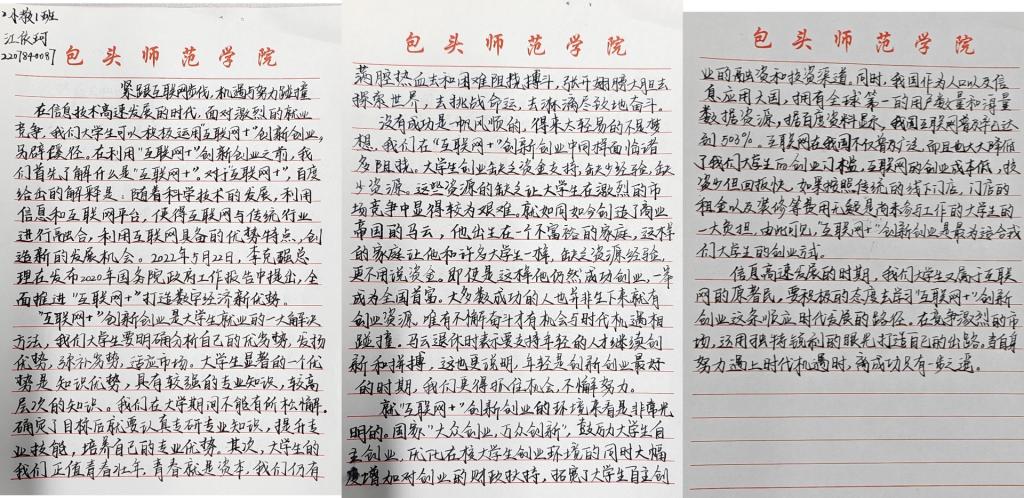 小教1班
江依珂
包头师范学院
紧跟互联网时代，机遇与努力碰撞
在信息技术高速发展的时代，面对激烈的就业
竞争，我们大学生可以校核运用互联网+"创新创业，
另辟蹊径。在利用"互联网+"创新创业之前，我
们首先了解什么是"互联网+"。对于互联网+"，百度
给出的解释是：随着科学技术的发展，利用
信息和互联网平台，使得互联网与传统行业
进行融合，利用互联网具备的优势特点，创
造新的发展机会。2022年5月22日，李克强总
理在发布2020年国务院政府工作报告中提出，全
面推进"互联网+"打造数字经济新优势。
"互联网+"创新创业是大学生就业的一大解决
方法，我们大学生要明确分析自己的优劣势，发扬
优势，弥补劣势，适应市场。大学生显著的一个优
势是知识优势，具有较强的专业知识，较高
层次的知识。我们在大学期间不能有所松懈。
确定了目标后就要认真专研专业知识，提升专
业技能，培养自己的专业优势。其次，大学生的
我们正值青春壮年，青春就是资本，我们仍有
包头师范学院
满腔热血去和困难阻挠搏斗，张开翅膀大胆去
探索世界，去挑战命运，去淋漓尽致地奋斗。
没有成功是一帆风顺的，得来太轻易的不是梦
想，我们在"互联网+"创新创业中同样面临诸
多阻挠。大学生创业缺乏资金支持，缺少经验，缺
少资源。这些资源的缺乏让大学生在激烈的市
场竞争中显得较为艰难。就如同如今创造了商业
帝国的马云，他出生在一个不富裕的家庭，这样
的家庭让他和许多大学生一样，缺乏资源经验，
更不用说资金。即便是这样他仍然成功创业，一举
成为全国首富。大多数成功的人也并非生下来就有
创业资源，唯有不懈奋斗才有机会与时代机遇相
碰撞。马云退休时表示要支持年轻的人继续创
新和拼搏，这也更说明，年轻是创新创业最好
的时期，我们更得抓住机会，不懈努力。
就"互联网+"创新创业的环境来看是非常光
明的。国家"大众创业，万众创新"，鼓励大学生自
主创业，优化在校大学生创业环境的同时大幅
度增加对创业的财政扶持，拓宽了大学生自主创
包头师范学院
业的融资和投资渠道，同时，我国作为人口以及信
息应用大国，拥有全球第一的用户数量和海量
数据资源，据百度资料显示，我国互联网普及率已达
到50.3%。互联网在我国不仅普及广泛，而且也大大降低
了我们大学生而创业门槛，互联网的创业成本低，投
资少但回报快。如果按照传统的线下门店，门店的
租金以及装修等费用无疑是尚未参与工作的大学生的
一大负担，由此可见，"互联网+"创新创业是最为适合我
们大学生的创业方式。
信息高速发展的时期，我们大学生又属于互联
网的原著民，要积极的态度去学习"互联网+"创新
创业这条顺应时代发展的路径。在竞争激烈的市
场，运用独特锐利的眼光打造自己的出路，当自身
努力遇上时代机遇时，离成功只有一步之遥。